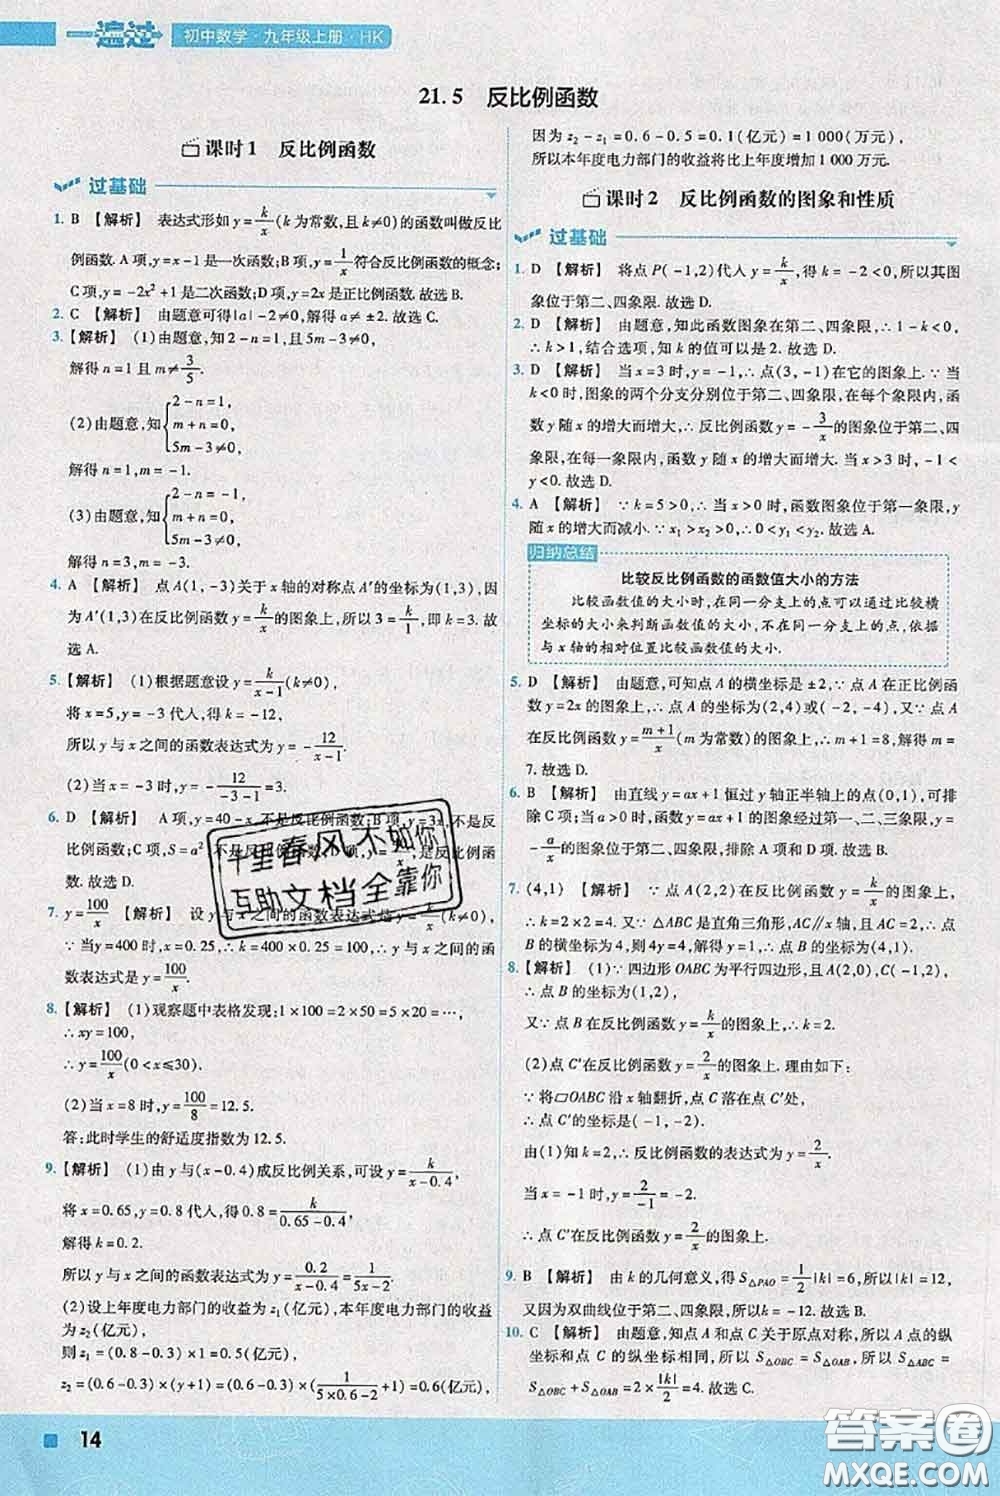 一遍过 初中数学·九年级上册·HK
21.5 反比例函数
课时1 反比例函数
过基础
1. B 【解析】 表达式形如y=k/x(k为常数,且k≠0)的函数叫做反比
例函数. A项,y=x-1是一次函数;B项,y=1/x符合反比例函数的概念;
C项,y=-2x²+1是二次函数;D项,y=2x是正比例函数.故选B.
2. C 【解析】 由题意可得|a|-2≠0,解得a≠±2.故选C.
3. 【解析】 (1)由题意,知2-n=1,且5m-3≠0,
解得n=1且m≠3/5.
(2)由题意,知{2-n=1, m+n=0, 5m-3≠0,
解得n=1,m=-1.
(3)由题意,知{2-n=-1, m+n=0, 5m-3≠0,
解得n=3,m=-3.
4. A 【解析】 点A(1,-3)关于x轴的对称点A'的坐标为(1,3),因
为A'(1,3)在反比例函数y=k/x的图象上,所以3=k/1,即k=3.故
选A.
5. 【解析】 (1)根据题意设y=k/(x-1)(k≠0),
将x=5,y=-3代入,得k=-12,
所以y与x之间的函数表达式为y=-12/(x-1).
(2)当x=-3时,y=-12/(-3-1)=3.
6. D 【解析】 A项,y=40-x,不是反比例函数;B项,y=3x,不是反
比例函数;C项,S=a²,不是反比例函数;D项, 是反比例函
数.故选D.
7. y=100/x 【解析】 设y与x之间的函数表达式是y=k/x(k≠0),
∵当y=400时,x=0.25,∴k=0.25×400=100,∴y与x之间的函
数表达式是y=100/x.
8. 【解析】 (1)观察题中表格发现:1×100=2×50=5×20=…,
∴xy=100,
∴y=100/x(0<x≤30).
(2)当x=8时,y=100/8=12.5.
答:此时学生的舒适度指数为12.5.
9. 【解析】 (1)由y与(x-0.4)成反比例关系,可设y=k/(x-0.4),
将x=0.65,y=0.8代入,得0.8=k/(0.65-0.4),
解得k=0.2.
所以y与x之间的函数表达式为y=0.2/(x-0.4)=1/(5x-2).
(2)设上年度电力部门的收益为z₁(亿元),本年度电力部门的收益
为z₂(亿元),
则z₁=(0.8-0.3)×1=0.5(亿元),
z₂=(0.6-0.3)×(y+1)=(0.6-0.3)×(1/(5×0.6-2)+1)=0.6(亿元),
因为z₂-z₁=0.6-0.5=0.1(亿元)=1 000(万元),
所以本年度电力部门的收益将比上年度增加1 000万元.
课时2 反比例函数的图象和性质
过基础
1. D 【解析】 将点P(-1,2)代入y=k/x,得k=-2<0,所以其图
象位于第二、四象限.故选D.
2. D 【解析】 由题意,知此函数图象在第二、四象限,∴1-k<0,
∴k>1,结合选项,知k的值可以是2.故选D.
3. D 【解析】 当x=3时,y=-1,∴点(3,-1)在它的图象上.∵
k<0,∴图象的两个分支分别位于第二、四象限,在每个象限内,
y随x的增大而增大,∴反比例函数y=-3/x的图象在第二、四
象限,在每一象限内,函数y随x的增大而增大.当x>3时,-1<
y<0.故选D.
4. A 【解析】 ∵k=5>0,∴当x>0时,函数图象位于第一象限,y
随x的增大而减小.∵x₁>x₂>0,∴0<y₁<y₂.故选A.
归纳总结
比较反比例函数的函数值大小的方法
比较函数值的大小时,在同一分支上的点可以通过比较横
坐标的大小来判断函数值的大小,不在同一分支上的点,依据
与x轴的相对位置比较函数值的大小.
5. D 【解析】 由题意,可知点A的横坐标是±2,∵点A在正比例函
数y=2x的图象上,∴点A的坐标为(2,4)或(-2,-4),又∵点A
在反比例函数y=(m+1)/x(m为常数)的图象上,∴m+1=8,解得m=
7.故选D.
6. B 【解析】 由直线y=ax+1恒过y轴正半轴上的点(0,1),可排
除C项;当a>0时,函数y=ax+1的图象经过第一、二、三象限,y=a/x
的图象位于第二、四象限,排除A项和D项.故选B.
7. (4,1) 【解析】 ∵点A(2,2)在反比例函数y=k/x的图象上,
∴k=2×2=4.又∵△ABC是直角三角形,AC∥x轴,且点A,点
B的横坐标为4,则4y=4,解得y=1,∴点B的坐标为(4,1).
8. 【解析】 (1)∵四边形OABC为平行四边形,且A(2,0),C(-1,2),
∴点B的坐标为(1,2),
又∵点B在反比例函数y=k/x的图象上,∴k=2.
(2)点C'在反比例函数y=2/x的图象上.理由如下:
∵将▱OABC沿x轴翻折,点C落在点C'处,
∴点C'的坐标是(-1,-2).
由(1)知k=2,∴反比例函数的表达式为y=2/x,
当x=-1时,y=2/-1=-2.
∴点C'在反比例函数y=2/x的图象上.
9. B 【解析】 由k的几何意义,得S△PAO=1/2|k|=6,所以|k|=12,
又因为双曲线位于第二、四象限,所以k=-12.故选B.
10. C 【解析】 由题意,知点A和点C关于原点对称,所以A点的纵
坐标和点C的纵坐标相同,所以S△OBC=S△OAB,所以S△ABC=
S△OBC+S△OAB=2×|k|/2=4.故选C.
千里春风不如你
互助文档全靠你
14
答案圈
MXQE.COM